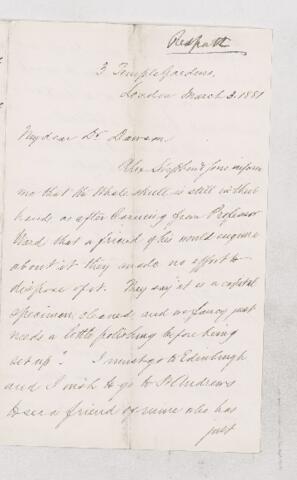 Redpath
3 Temple Gardens,
London March 3. 1881
My dear Dr Dawson
Alex Stephen & Sons inform
me that the Whale skull is still in their
hands as after learning from Professor
Ward that a friend of his would enquire
about it they made no effort to
dispose of it. They say "it is a capital
specimen, cleaned, and we fancy just
needs a little polishing before being
set up". I must go to Edinburgh
and I wish to go to St Andrews
to see a friend of mine who has
just